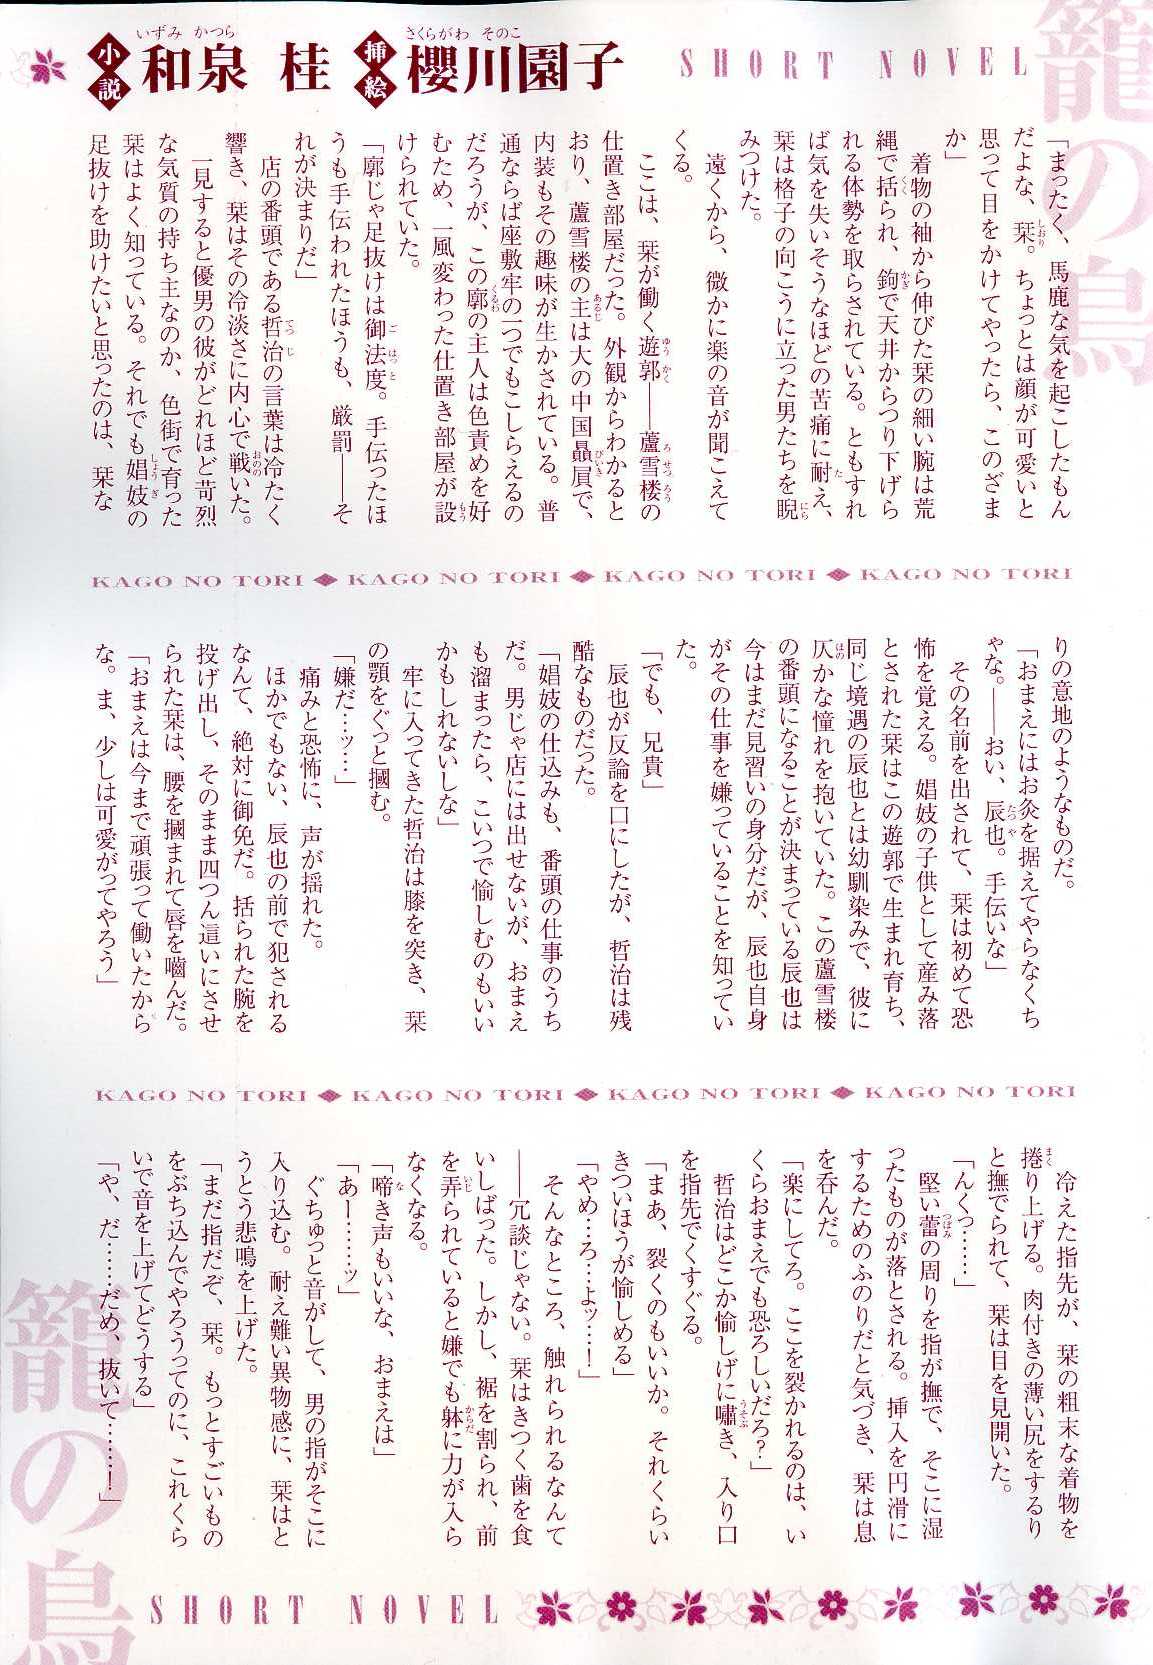 籠の鳥
小説 和泉 桂 挿絵 櫻川園子
いずみ かつら さくらがわ そのこ
SHORT NOVEL
「まったく、馬鹿な気を起こしたもん
だよな、栞。ちょっとは顔が可愛いと
思って目をかけてやったら、このざま
か」
着物の袖から伸びた栞の細い腕は荒
縄で括られ、鉤で天井からつり下げら
れる体勢を取らされている。ともすれ
ば気を失いそうなほどの苦痛に耐え、
栞は格子の向こうに立った男たちを睨
みつけた。
遠くから、微かに楽の音が聞こえて
くる。
ここは、栞が働く遊郭――蘆雪楼の
仕置き部屋だった。外観からわかると
おり、蘆雪楼の主は大の中国贔屓で、
内装もその趣味が生かされている。普
通ならば座敷牢の一つでもこしらえるの
だろうが、この廓の主人は色責めを好
むため、一風変わった仕置き部屋が設
けられていた。
「廓じゃ足抜けは御法度。手伝ったほ
うも手伝われたほうも、厳罰――そ
れが決まりだ」
店の番頭である哲治の言葉は冷たく
響き、栞はその冷淡さに内心で戦いた。
一見すると優男の彼がどれほど苛烈
な気質の持ち主なのか、色街で育った
栞はよく知っている。それでも娼妓の
足抜けを助けたいと思ったのは、栞な
KAGO NO TORI◆KAGO NO TORI◆KAGO NO TORI◆KAGO NO TORI
りの意地のようなものだ。
「おまえにはお灸を据えてやらなくち
ゃな。――おい、辰也。手伝いな」
その名前を出されて、栞は初めて恐
怖を覚える。娼妓の子供として産み落
とされた栞はこの遊郭で生まれ育ち、
同じ境遇の辰也とは幼馴染みで、彼に
仄かな憧れを抱いていた。この蘆雪楼
の番頭になることが決まっている辰也は
今はまだ見習いの身分だが、辰也自身
がその仕事を嫌っていることを知ってい
た。
「でも、兄貴」
辰也が反論を口にしたが、哲治は残
酷なものだった。
「娼妓の仕込みも、番頭の仕事のうち
だ。男じゃ店には出せないが、おまえ
も溜まったら、こいつで愉しむのもいい
かもしれないしな」
牢に入ってきた哲治は膝を突き、栞
の顎をぐっと摑む。
「嫌だ…ッ…」
痛みと恐怖に、声が揺れた。
ほかでもない、辰也の前で犯される
なんて、絶対に御免だ。括られた腕を
投げ出し、そのまま四つん這いにさせ
られた栞は、腰を摑まれて唇を嚙んだ。
「おまえは今まで頑張って働いたから
な。ま、少しは可愛がってやろう」
KAGO NO TORI◆KAGO NO TORI◆KAGO NO TORI◆KAGO NO TORI
冷えた指先が、栞の粗末な着物を
捲り上げる。肉付きの薄い尻をするり
と撫でられて、栞は目を見開いた。
「んくっ……」
堅い蕾の周りを指が撫で、そこに湿
ったものが落とされる。挿入を円滑に
するためのふのりだと気づき、栞は息
を呑んだ。
「楽にしてろ。ここを裂かれるのは、い
くらおまえでも恐ろしいだろ？」
哲治はどこか愉しげに嘯き、入り口
を指先でくすぐる。
「まあ、裂くのもいいか。それくらい
きついほうが愉しめる」
「やめ…ろ…よッ…！」
そんなところ、触れられるなんて
――冗談じゃない。栞はきつく歯を食
いしばった。しかし、裾を割られ、前
を弄られていると嫌でも躰に力が入ら
なくなる。
「啼き声もいいな、おまえは」
「あー……ッ」
ぐちゅっと音がして、男の指がそこに
入り込む。耐え難い異物感に、栞はと
うとう悲鳴を上げた。
「まだ指だぞ、栞。もっとすごいもの
をぶち込んでやろうってのに、これくら
いで音を上げてどうする」
「や、だ……だめ、抜いて……！」
SHORT NOVEL
籠の鳥